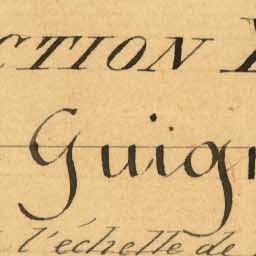 CTION
Guign
l'échelle de